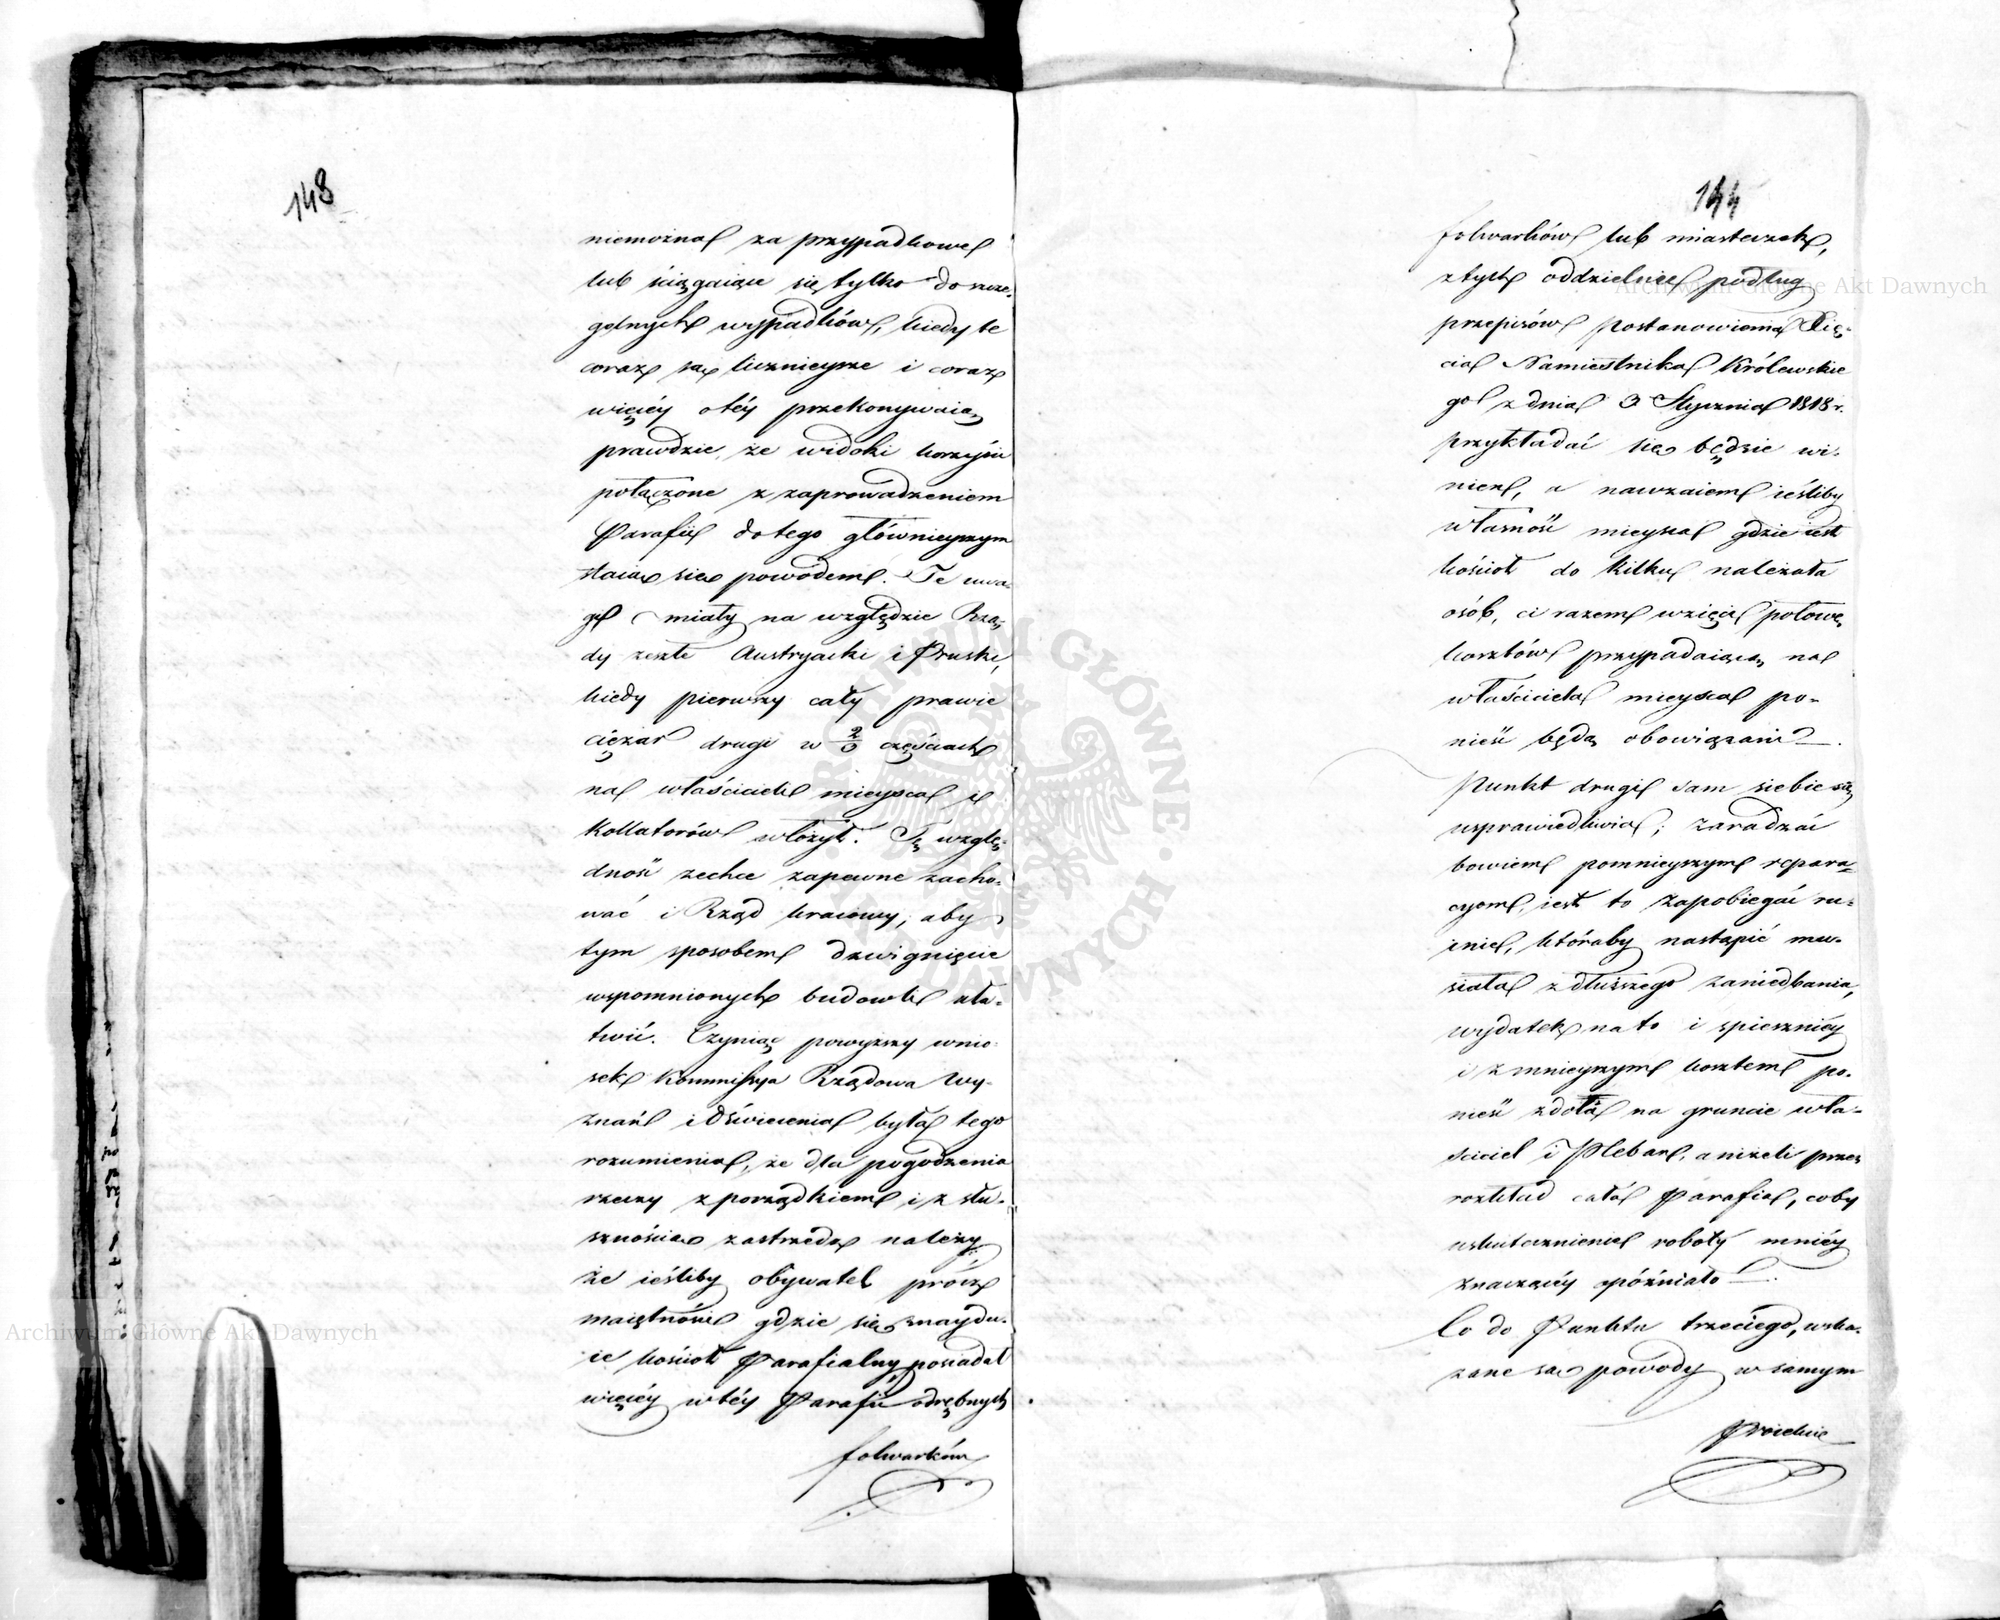 148
niemożna za przypadkowe
lub ściągaiące się tylko do szcze-
gólnych wypadków, kiedy te
coraz są licznieysze i coraz
więcéy o téy przekonywaią
prawdzie, że widoki korzyści
połączone z zaprowadzeniem
Parafii do tego głównieyszym
staią się powodem. Te uwa-
gi miały na względzie Rzą-
dy zeszłe Austryacki i Pruski,
kiedy pierwszy cały prawie
ciężar drugi w 2/3 częściach
na właściciela mieysca i
Kollatorów włożył. Tę wzglę-
dność zechce zapewne zacho-
wać i Rząd kraiowy, aby
tym sposobem dzwignięcie
wspomnionych budowli uła-
twić. Czyniąc powyższy wnio-
sek Kommissya Rządowa Wy-
znań i Oświecenia była tego
rozumienia, że dla pogodzenia
rzeczy z porządkiem i z słu-
sznością zastrzedz należy
że ieśliby obywatel prócz
maiętności gdzie się znaydu-
ie kościół Parafialny posiadał
więcéy w téy Parafii odrębnych
folwarków
144
folwarków lub miasteczek,
z tych oddzielnie podług
przepisów Postanowienia Xię-
cia Namiestnika Królewskie
go z dnia 3 Stycznia 1818 r.
przykładać się będzie wi-
nien, a nawzaiem ieśliby
własność mieysca gdzie iest
kościół do kilku należała
osób, ci razem wzięci połowę
kosztów przypadaiącą na
właściciela mieysca po-
nieść będą obowiązani.
Punkt drugi sam siebie
usprawiedliwia; zaradzać
bowiem pomnieyszym repara-
cyom, iest to zapobiegać ru-
inie, któraby nastąpić mu-
siała z dłuższego zaniedbania,
wydatek na to i spieszniéy
i z mnieyszym kosztem po-
nieść zdoła na gruncie wła-
ściciel i Pleban, aniżeli przez
rozkład cała Parafia, coby
uskutecznienie roboty mniéy
znaczącéy opóźniało.
Co do Punktu trzeciego, wska-
zane są powody w samym
Proiekcie
Archiwum Główne Akt Dawnych
Archiwum Główne Akt Dawnych
ARCHIWUM GŁÓWNE AKT DAWNYCH